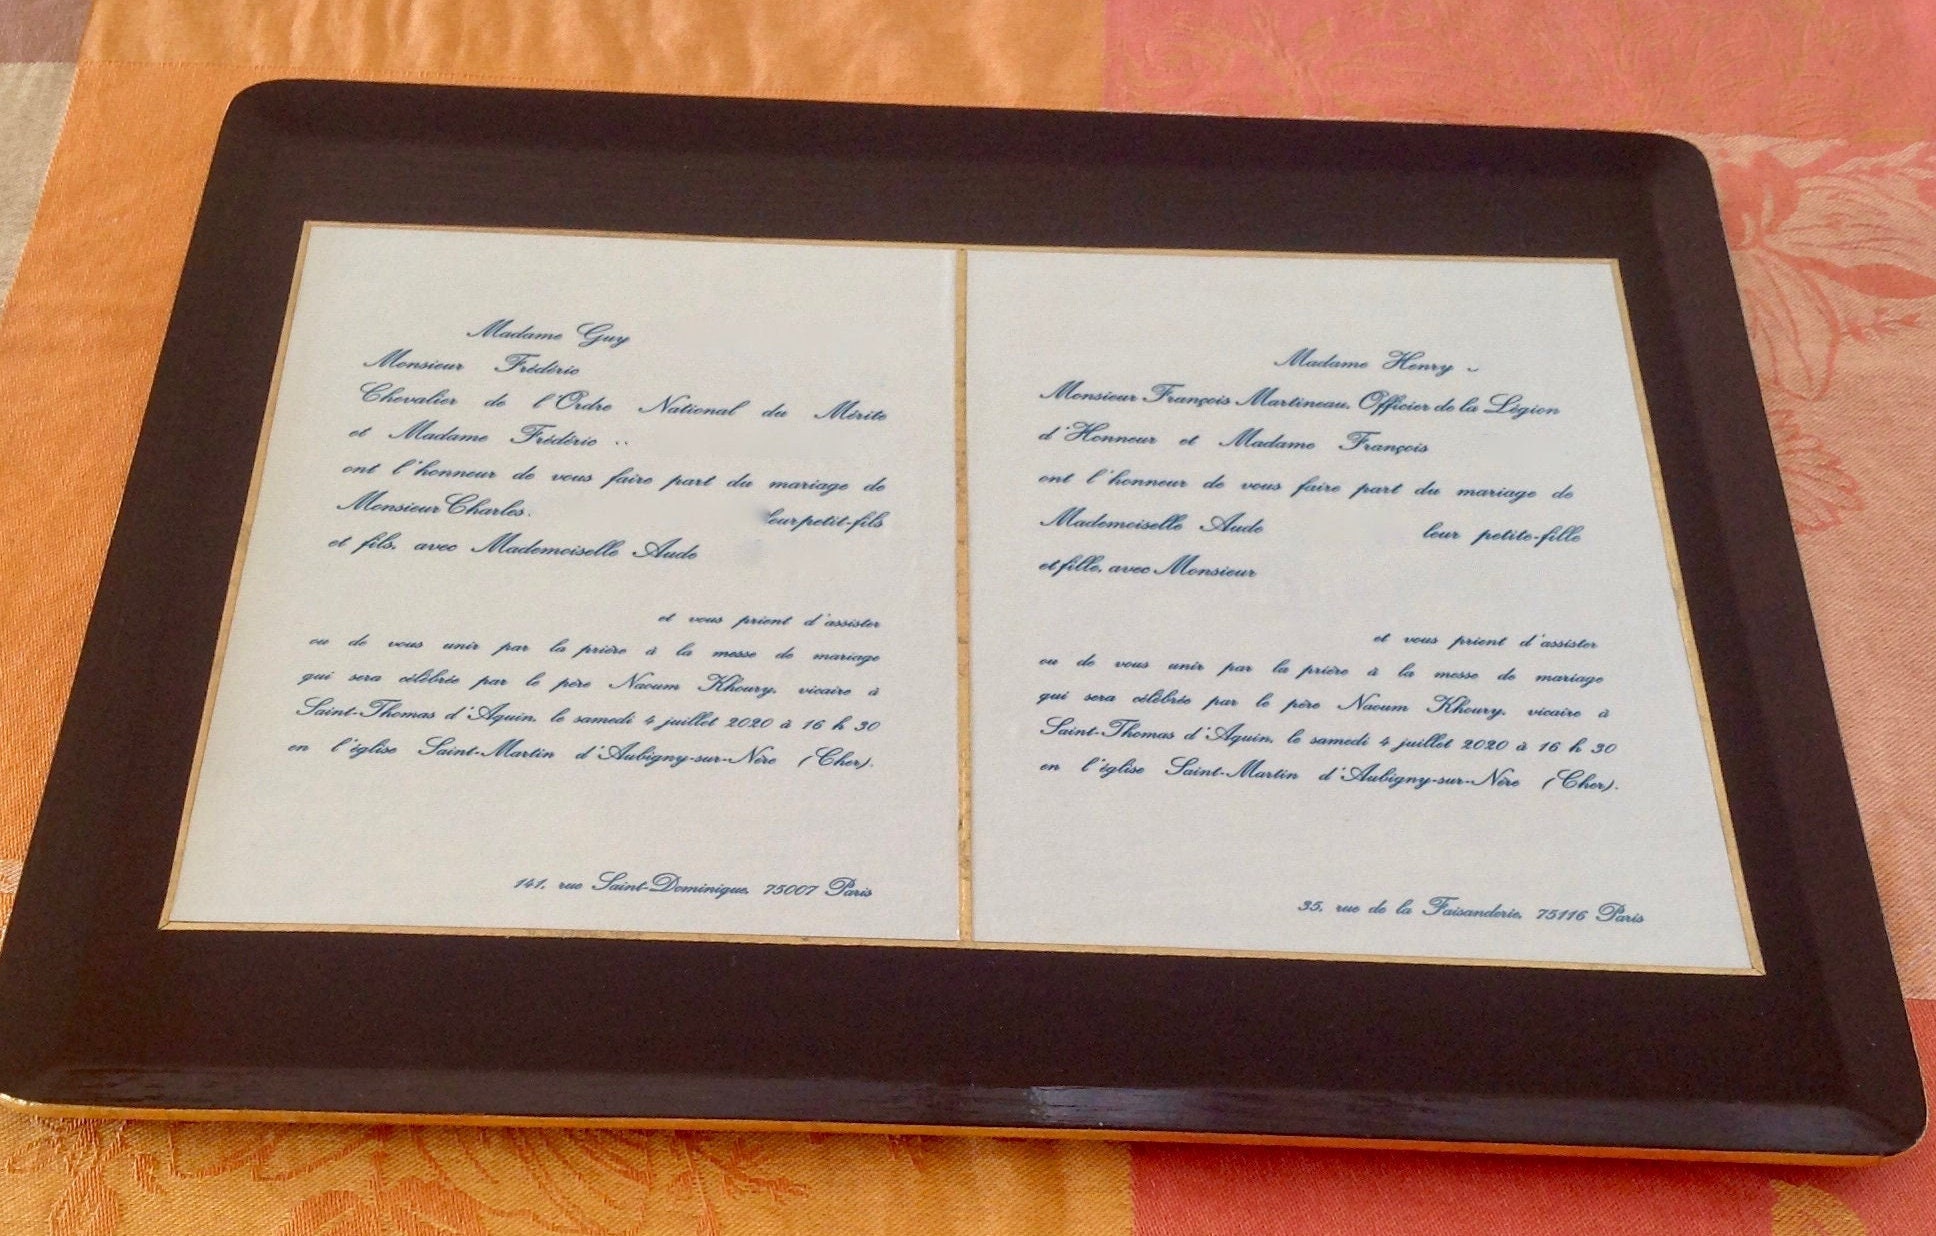 Madame Guy
Monsieur Frédéric
Chevalier de l'Ordre National du Mérite
et Madame Frédéric ..
ont l'honneur de vous faire part du mariage de
Monsieur Charles. leur petit-fils
et fils, avec Mademoiselle Aude
et vous prient d'assister
ou de vous unir par la prière à la messe de mariage
qui sera célébrée par le père Naoum Khoury, vicaire à
Saint-Thomas d'Aquin, le samedi 4 juillet 2020 à 16 h 30
en l'église Saint-Martin d'Aubigny-sur-Nère (Cher).
141, rue Saint-Dominique, 75007 Paris
Madame Henry
Monsieur François Martineau, Officier de la Légion
d'Honneur et Madame François
ont l'honneur de vous faire part du mariage de
Mademoiselle Aude leur petite-fille
et fille, avec Monsieur
et vous prient d'assister
ou de vous unir par la prière à la messe de mariage
qui sera célébrée par le père Naoum Khoury, vicaire à
Saint-Thomas d'Aquin, le samedi 4 juillet 2020 à 16 h 30
en l'église Saint-Martin d'Aubigny-sur-Nère (Cher).
35, rue de la Faisanderie, 75116 Paris